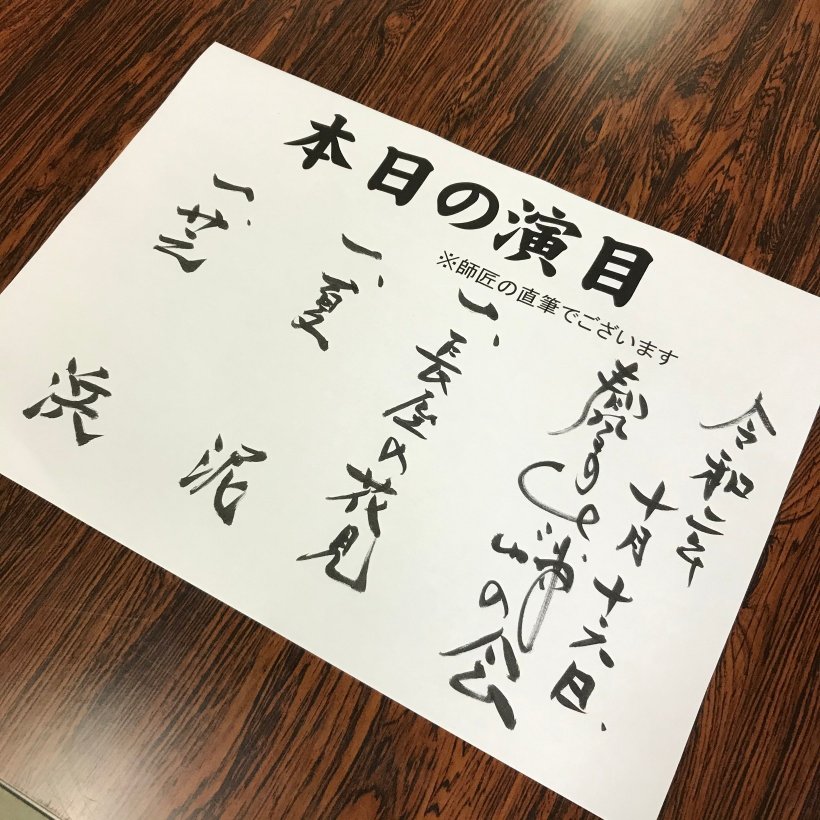 本日の演目
※師匠の直筆でございます
令和二年
十月十六日、
の会
一、長屋の花見
一、夏泥
一、芝浜